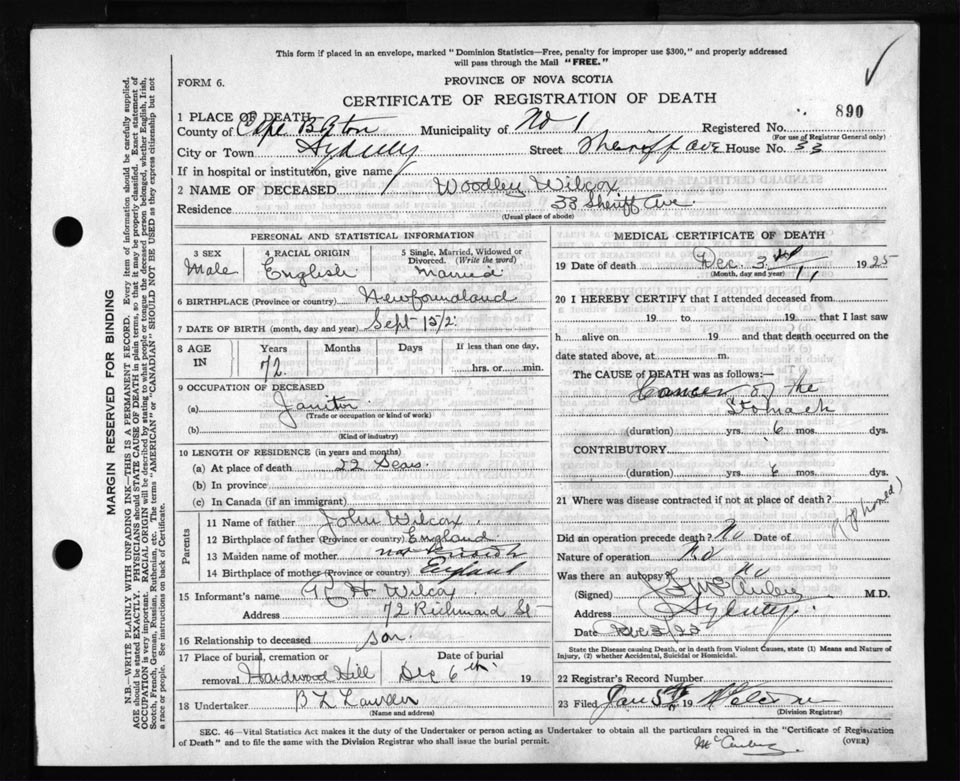 This form if placed in an envelope, marked "Dominion Statistics—Free, penalty for improper use $300," and properly addressed
will pass through the Mail "FREE."
FORM 6.
PROVINCE OF NOVA SCOTIA
CERTIFICATE OF REGISTRATION OF DEATH
890
1 PLACE OF DEATH
County of Cape Breton Municipality of No 1 Registered No.
(For use of Registrar General only)
City or Town Sydney Street Sheriff Ave House No. 33
If in hospital or institution, give name
2 NAME OF DECEASED Woodley Wilcox
Residence 33 Sheriff Ave.
(Usual place of abode)
PERSONAL AND STATISTICAL INFORMATION
3 SEX Male
4 RACIAL ORIGIN English
5 Single, Married, Widowed or Divorced. (Write the word) Married
6 BIRTHPLACE (Province or country) Newfoundland
7 DATE OF BIRTH (month, day and year) Sept
8 AGE IN Years Months Days If less than one day, hrs. or min.
72
9 OCCUPATION OF DECEASED
(a) Janitor
(Trade or occupation or kind of work)
(b)
(Kind of industry)
10 LENGTH OF RESIDENCE (in years and months)
(a) At place of death 22
(b) In province
(c) In Canada (if an immigrant)
Parents
11 Name of father John Wilcox
12 Birthplace of father (Province or country) England
13 Maiden name of mother not
14 Birthplace of mother (Province or country) England
15 Informant's name H Wilcox
Address 72 Richmond St
16 Relationship to deceased son
17 Place of burial, cremation or removal Hardwood Hill
Date of burial Dec 6th 19
18 Undertaker B L
(Name and address)
MEDICAL CERTIFICATE OF DEATH
19 Date of death Dec. 3 1925
(Month, day and year)
20 I HEREBY CERTIFY that I attended deceased from
19 to 19 that I last saw
h alive on 19 and that death occurred on the
date stated above, at m.
The CAUSE of DEATH was as follows:—
Cancer of the
Stomach
(duration) yrs. 6 mos. dys.
CONTRIBUTORY
(duration) yrs. 6 mos. dys.
21 Where was disease contracted if not at place of death?
Did an operation precede death? No Date of
Nature of operation No
Was there an autopsy? No
(Signed) M.D.
Address Sydney
Date
State the Disease causing Death, or in death from Violent Causes, state (1) Means and Nature of
Injury, (2) whether Accidental, Suicidal or Homicidal.
22 Registrar's Record Number
23 Filed Jan 5th 19
(Division Registrar)
SEC. 46—Vital Statistics Act makes it the duty of the Undertaker or person acting as Undertaker to obtain all the particulars required in the "Certificate of Registration
of Death" and to file the same with the Division Registrar who shall issue the burial permit.
(OVER)
MARGIN RESERVED FOR BINDING
N.B.—WRITE PLAINLY WITH UNFADING INK—THIS IS A PERMANENT RECORD. Every item of information should be carefully supplied.
AGE should be stated EXACTLY. PHYSICIANS should STATE CAUSE OF DEATH in plain terms, so that it may be properly classified. Exact statement of
OCCUPATION is very important. RACIAL ORIGIN will be described by stating to what people or tongue the deceased person belonged, whether English, Irish,
Scotch, French, German, Russian, Ruthenian, etc. The terms "AMERICAN" or "CANADIAN" SHOULD NOT BE USED as they express citizenship but not
a race or people. See instructions on back of Certificate.